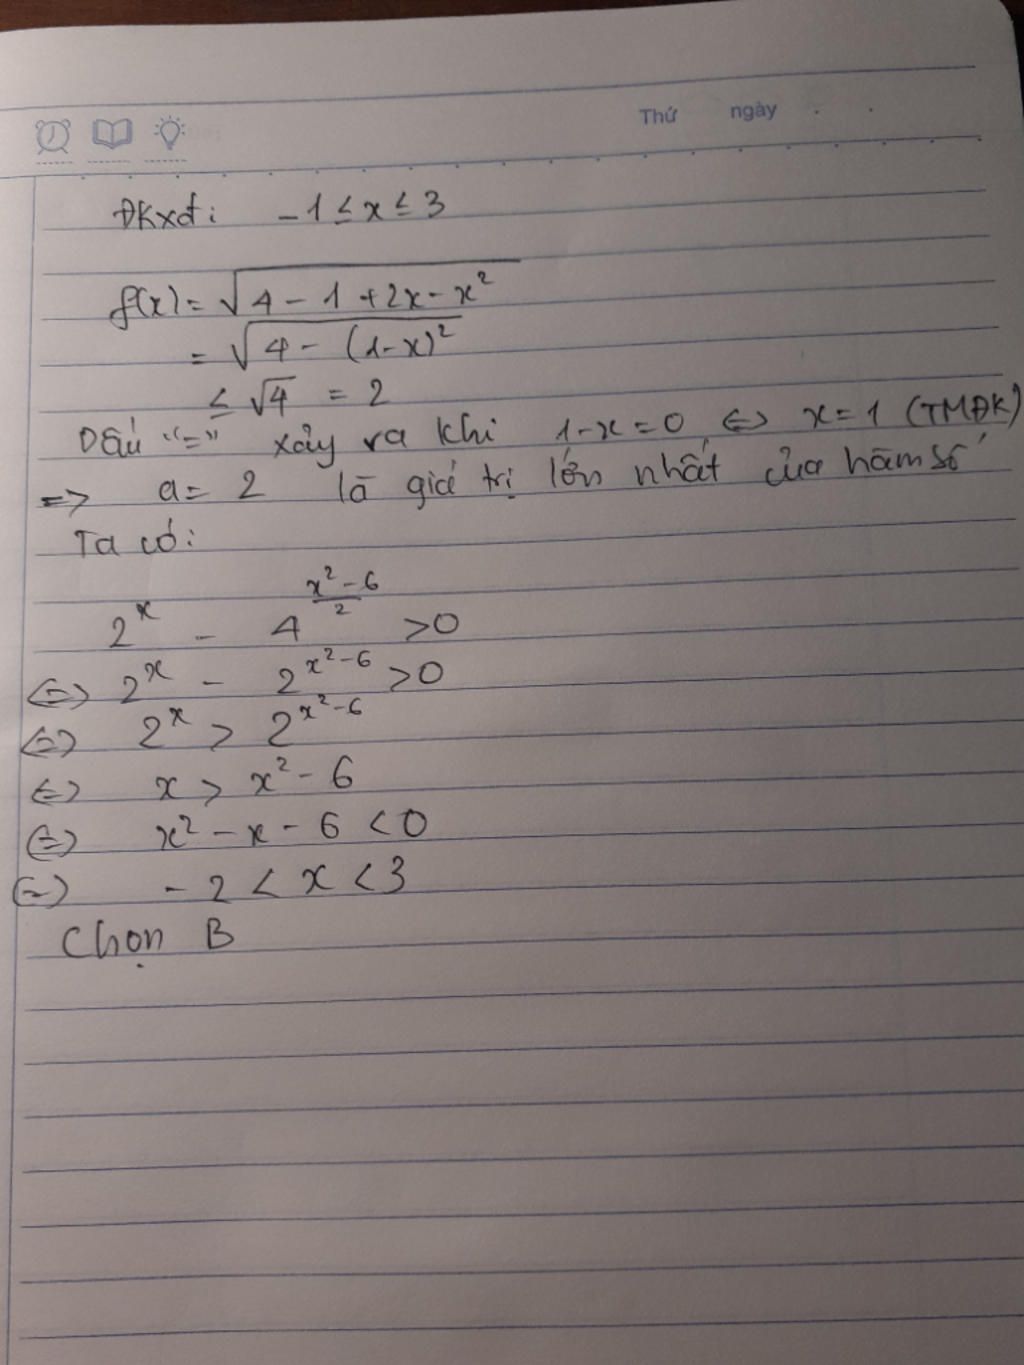 Thứ ngày
ĐKxđ: -1 ≤ x ≤ 3
f(x) = √(4 - 1 + 2x - x²)
= √(4 - (1-x)²)
≤ √4 = 2
Dấu "=" xảy ra khi 1-x = 0 ⇔ x = 1 (TMĐK)
=> a = 2 là giá trị lớn nhất của hàm số
Ta có:
2^x - 4^((x²-6)/2) > 0
⇔ 2^x - 2^(x²-6) > 0
⇔ 2^x > 2^(x²-6)
⇔ x > x² - 6
⇔ x² - x - 6 < 0
⇔ -2 < x < 3
Chọn B